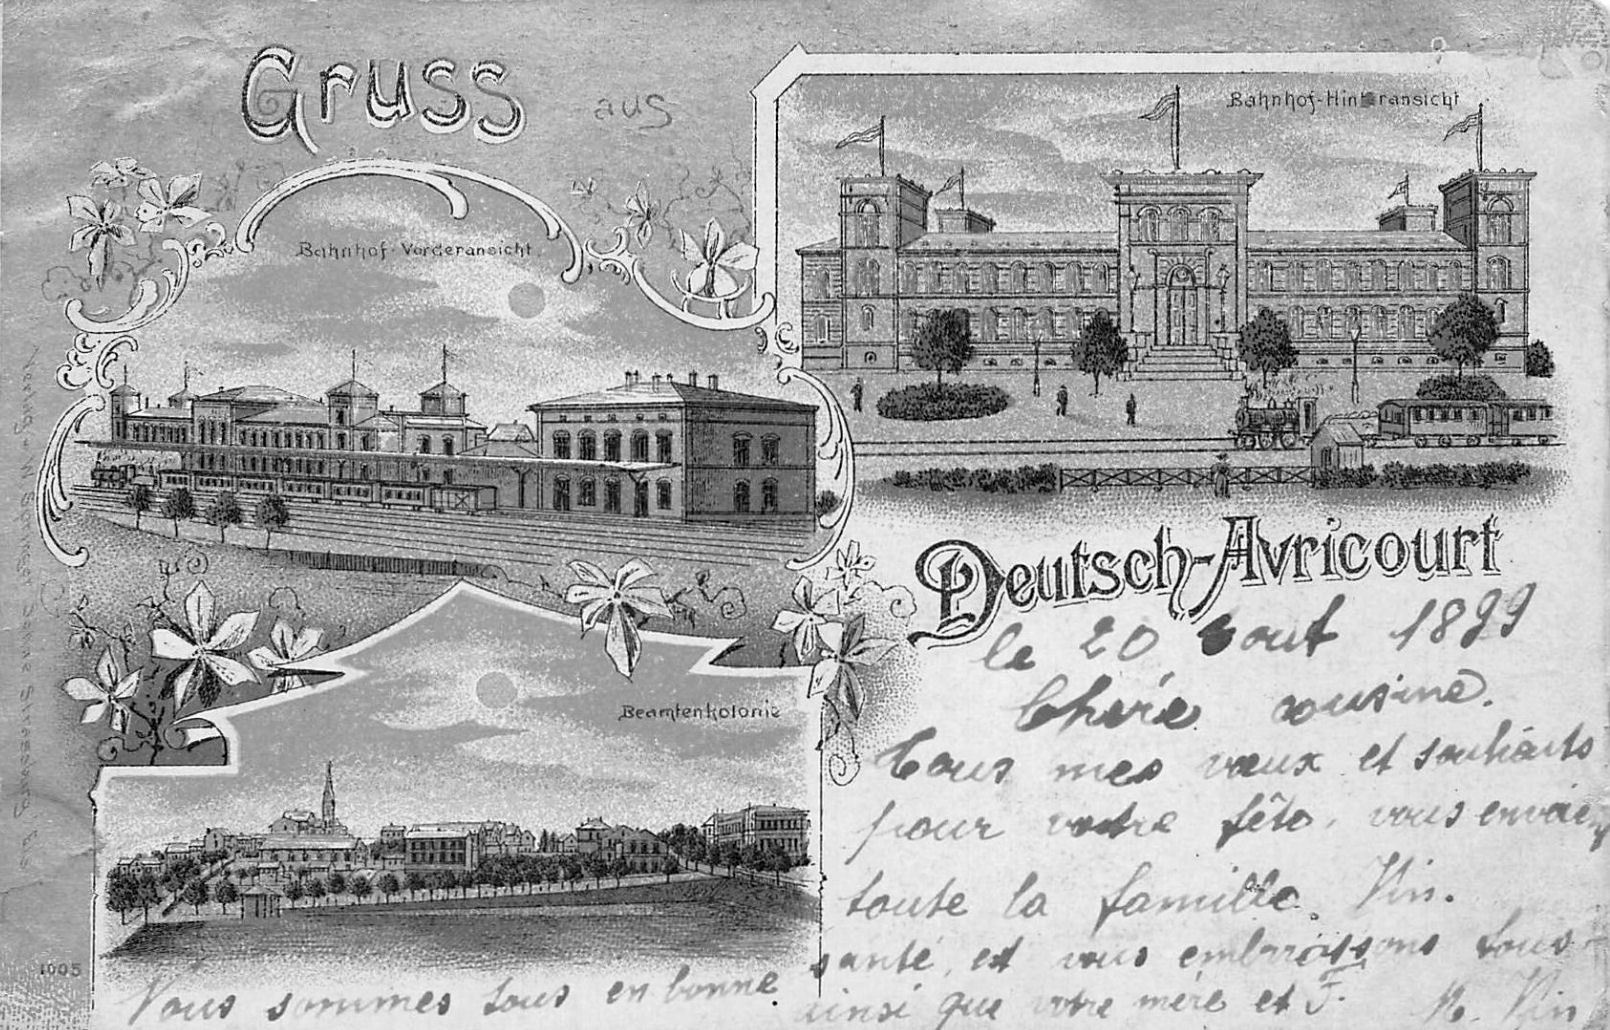 Gruss aus
Bahnhof-Hinteransicht
Bahnhof-Vorderansicht
Deutsch-Avricourt
le 20 aout 1899
Chère cousine.
Tous mes vœux et souhaits
pour votre fête, vous envoie
toute la famille. Vin.
Beamtenkolonie
Nous sommes tous en bonne santé, et vous embrassons tous
ainsi que votre mère et F.
M. Vin
1005